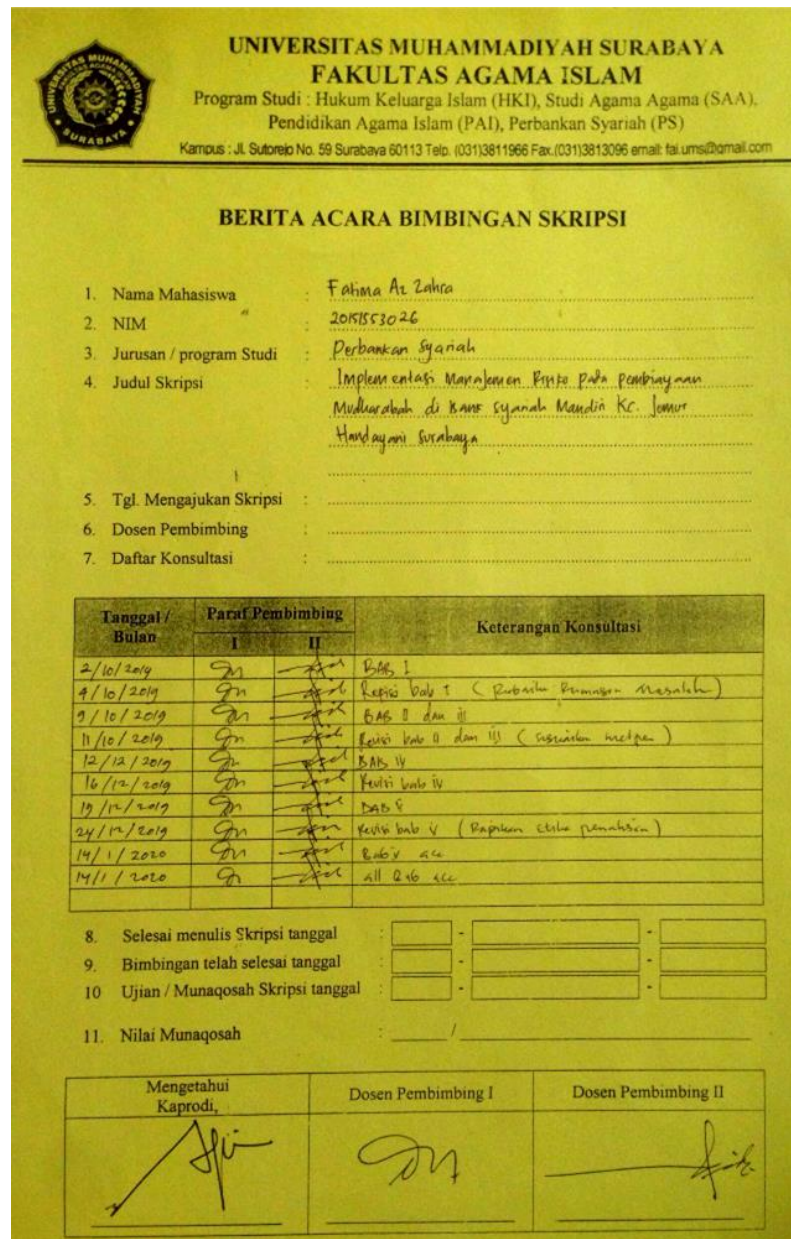 UNIVERSITAS MUHAMMADIYAH SURABAYA
FAKULTAS AGAMA ISLAM
Program Studi : Hukum Keluarga Islam (HKI), Studi Agama Agama (SAA),
Pendidikan Agama Islam (PAI), Perbankan Syariah (PS)
Kampus : Jl. Sutorejo No. 59 Surabaya 60113 Telp. (031)3811966 Fax.(031)3813096 email: fai.ums@gmail.com
UNIVERSITAS MUHAMMADIYAH
SURABAYA
BERITA ACARA BIMBINGAN SKRIPSI
1. Nama Mahasiswa : Fatima Az Zahra
2. NIM : 20151553026
3. Jurusan / program Studi : Perbankan Syariah
4. Judul Skripsi : Implementasi Manajemen Risiko pada pembiayaan
Mudharabah di Bank Syariah Mandiri Kc. Jemur
Handayani Surabaya
5. Tgl. Mengajukan Skripsi :
6. Dosen Pembimbing :
7. Daftar Konsultasi :
Tanggal / Bulan Paraf Pembimbing Keterangan Konsultasi
I II
2/10/2019 BAB I
4/10/2019 Revisi bab I ( Rumusan Masalah )
9/10/2019 BAB II dan iii
11/10/2019 Revisi bab II dan iii ( sesuaikan metpen )
12/12/2019 BAB IV
16/12/2019 Revisi bab iv
19/12/2019 BAB V
24/12/2019 Revisi bab V ( Rapikan penulisan )
14/1/2020 Bab v acc
14/1/2020 all Bab acc
8. Selesai menulis Skripsi tanggal : - -
9. Bimbingan telah selesai tanggal : - -
10 Ujian / Munaqosah Skripsi tanggal : - -
11. Nilai Munaqosah : /
Mengetahui
Kaprodi, Dosen Pembimbing I Dosen Pembimbing II